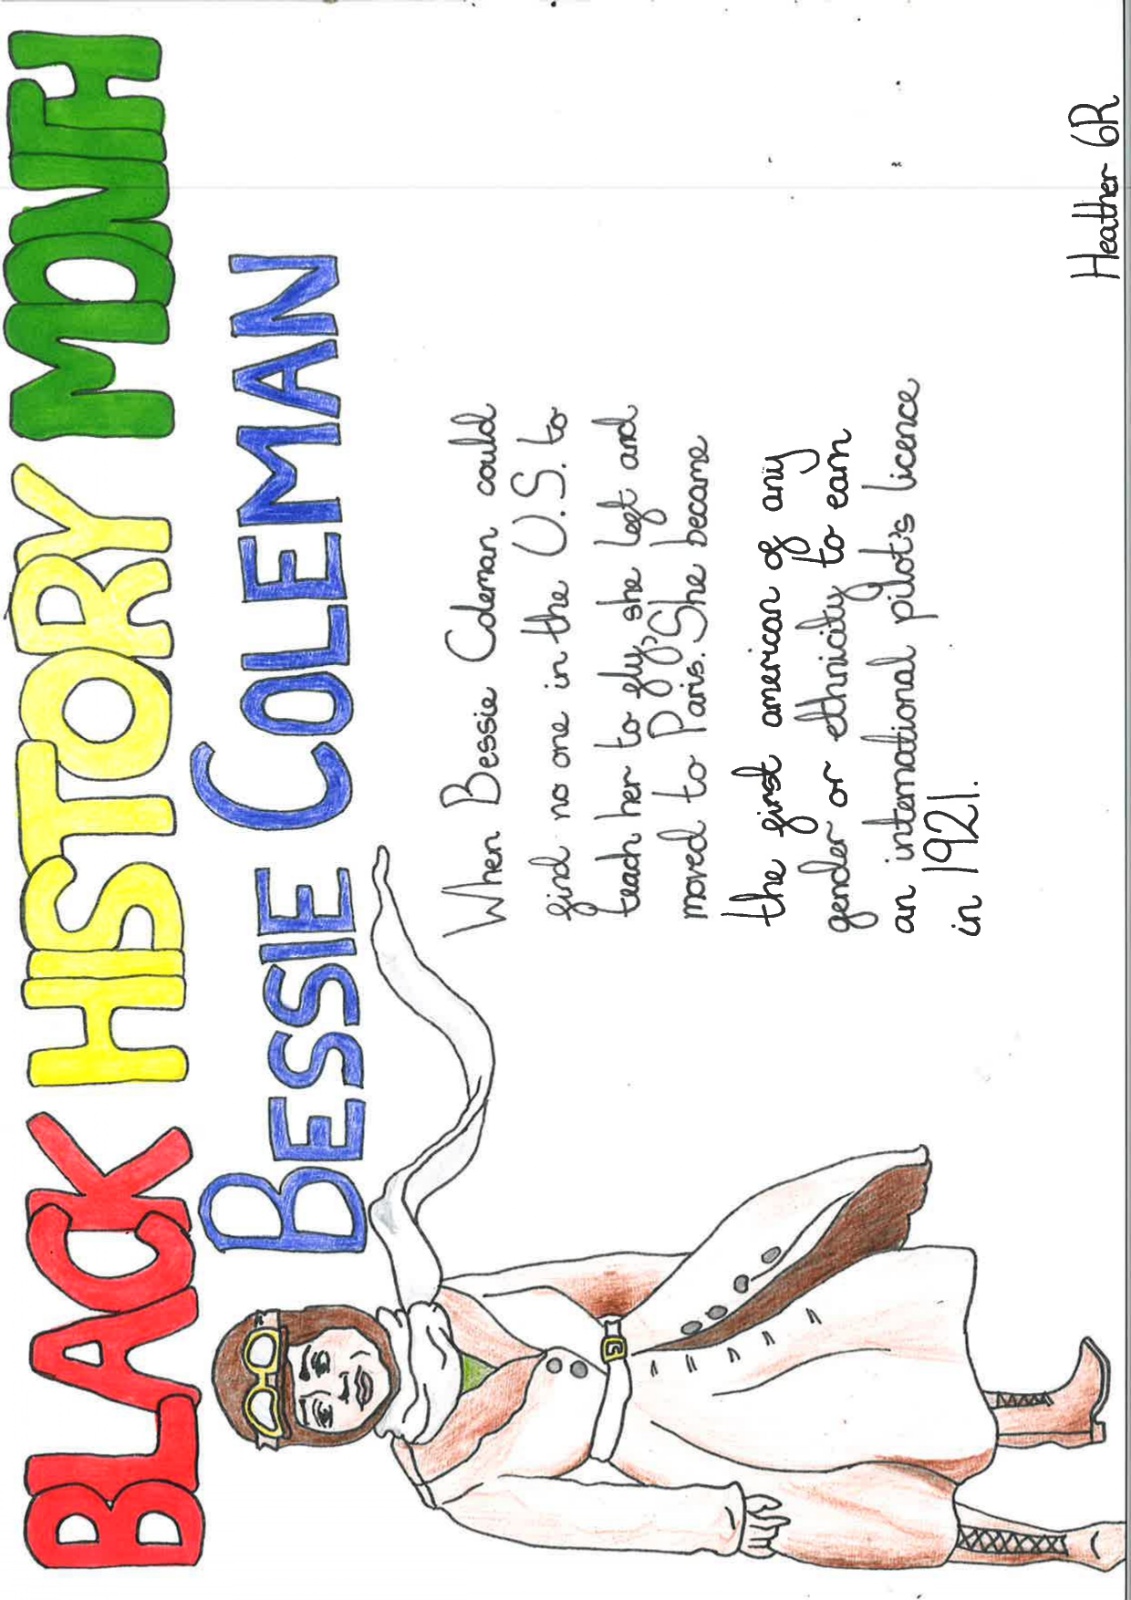 BLACK HISTORY MONTH
BESSIE COLEMAN
When Bessie Coleman could
find no one in the U.S. to
teach her to fly, she left and
moved to Paris. She became
the first american of any
gender or ethnicity to earn
an international pilot's licence
in 1921.
Heather 6R